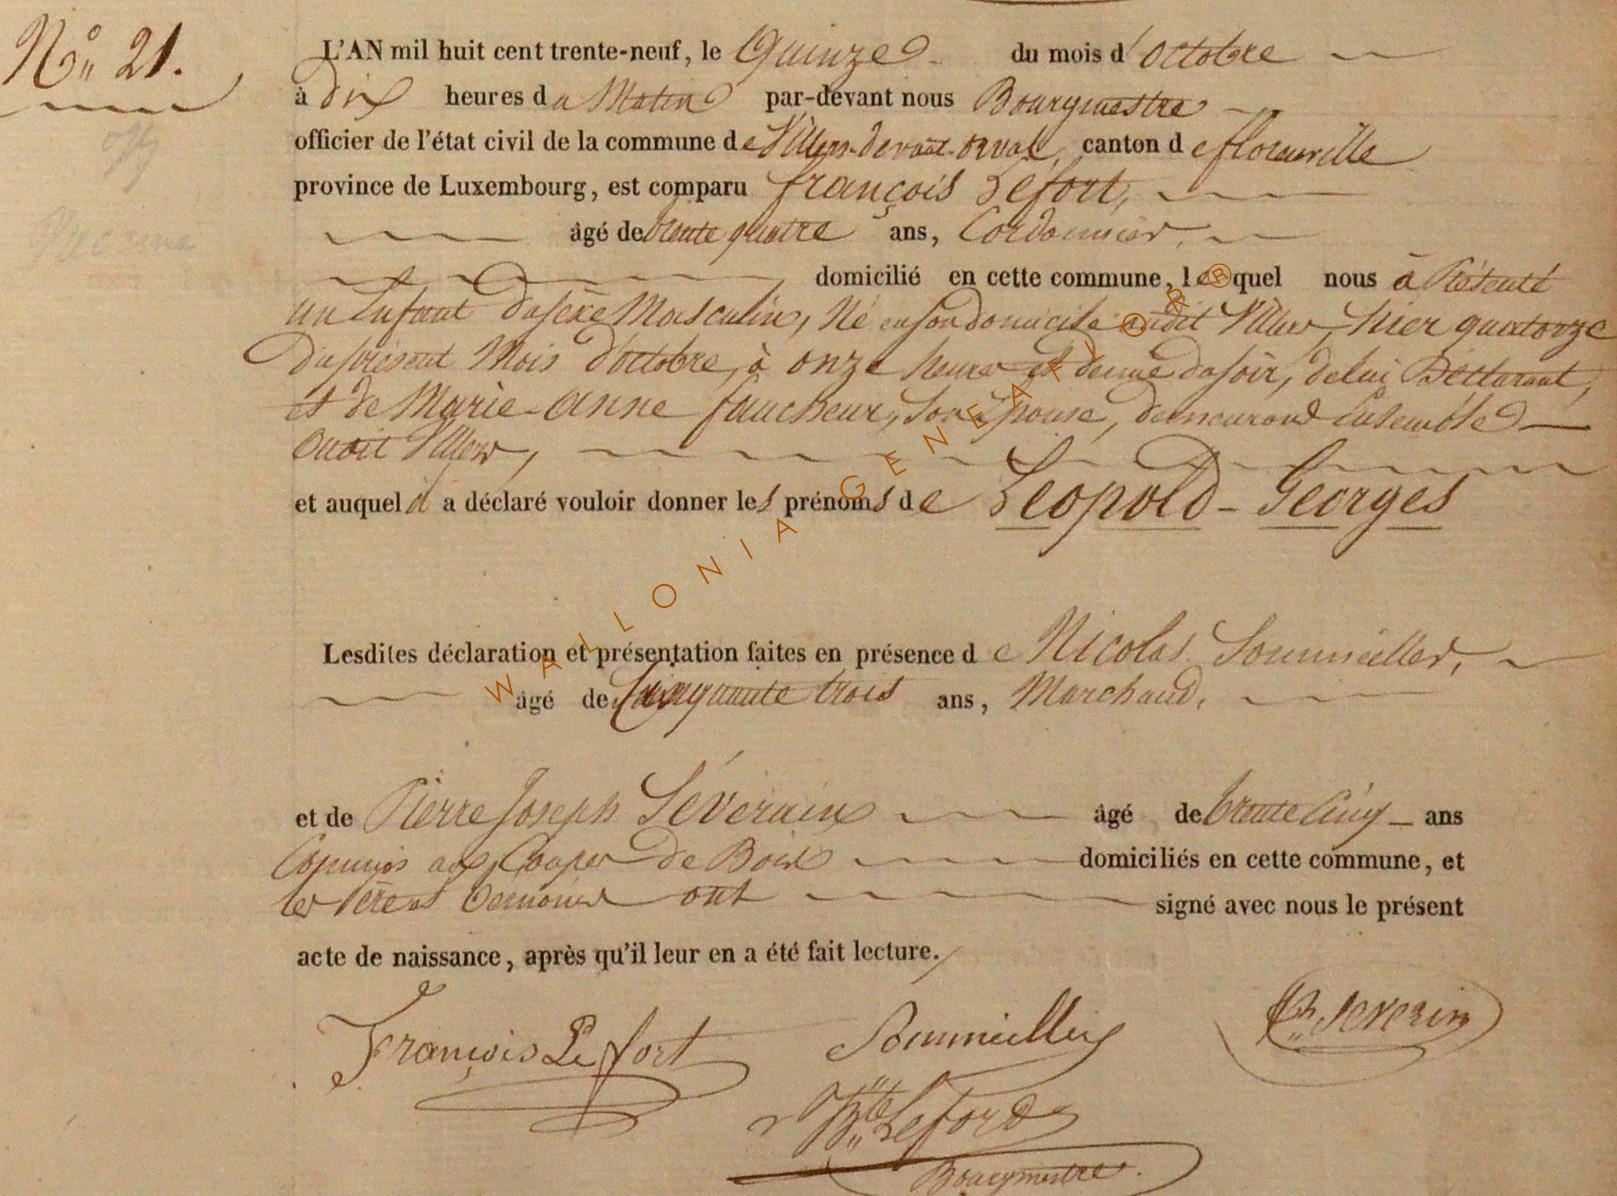 N° 21.
L'AN mil huit cent trente-neuf, le Quinze du mois d'octobre
à dix heures du Matin par-devant nous Bourgmestre
officier de l'état civil de la commune de Villers-devant-orval, canton de florenville
province de Luxembourg, est comparu françois Lefort,
âgé de trente quatre ans, Cordonnier,
domicilié en cette commune, lequel nous à Présenté
un Enfant du sexe Masculin, Né en son domicile audit Villers, hier quatorze
du présent Mois d'octobre, à onze heures et demie du soir, de lui Déclarant,
et de Marie-Anne faucheur, son épouse, demeurant Ensemble
audit Villers,
et auquel il a déclaré vouloir donner les prénoms de Leopold-Georges
Lesdites déclaration et présentation faites en présence de Nicolas Soumeiller,
âgé de Cinquante trois ans, Marchand,
et de Pierre Joseph Séverain âgé de trente Cinq ans
Commis aux Coupes de Bois domiciliés en cette commune, et
les Père et temoins ont signé avec nous le présent
acte de naissance, après qu'il leur en a été fait lecture.
François Lefort Soumeillier Severin
Leford
Bourgmestre.
WALLONIA GENEALORB®